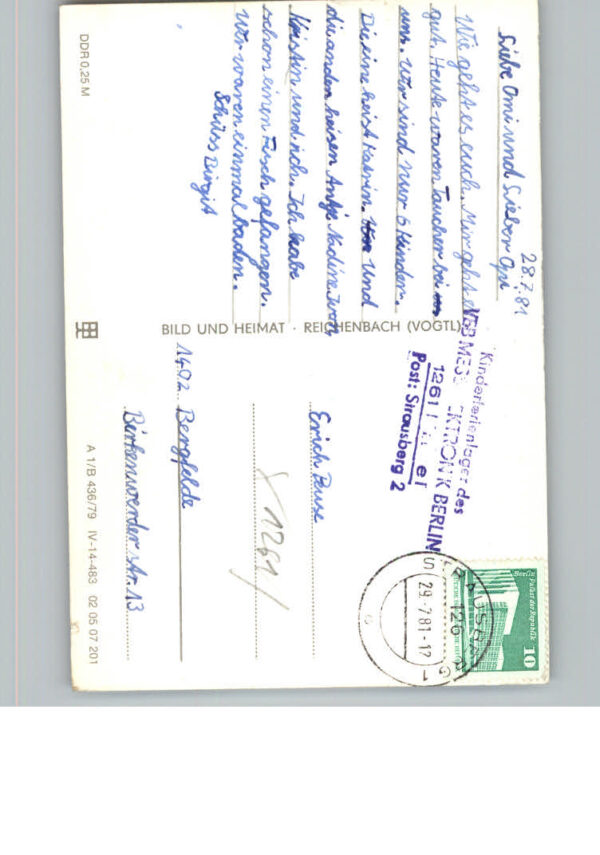 28.7.81
Liebe Omi und Lieber Opi
Wie geht es euch. Mir geht es
gut. Heute waren Taucher bei
uns. Wir sind nur 6 Kinder.
Die eine heist Katrin. Und
die anden heisen Antje Nadine
Kristin und ich. Ich habe
schon einen Fisch gefangen.
Wir waren einmal baden.
Schüss Birgit
DDR 0,25 M
BILD UND HEIMAT · REICHENBACH (VOGTL)
Kinderferienlager des
VEB MESSELEKTRONIK BERLIN
1261
Post: Strausberg 2
Erich
1261
1492 Bergfelde
Birkenwerder str. 13
A 1/B 436/79 IV-14-483 02 05 07 201
STRAUSBERG 1
126
29.-7.81-17
Berlin, Palast der Republik
10